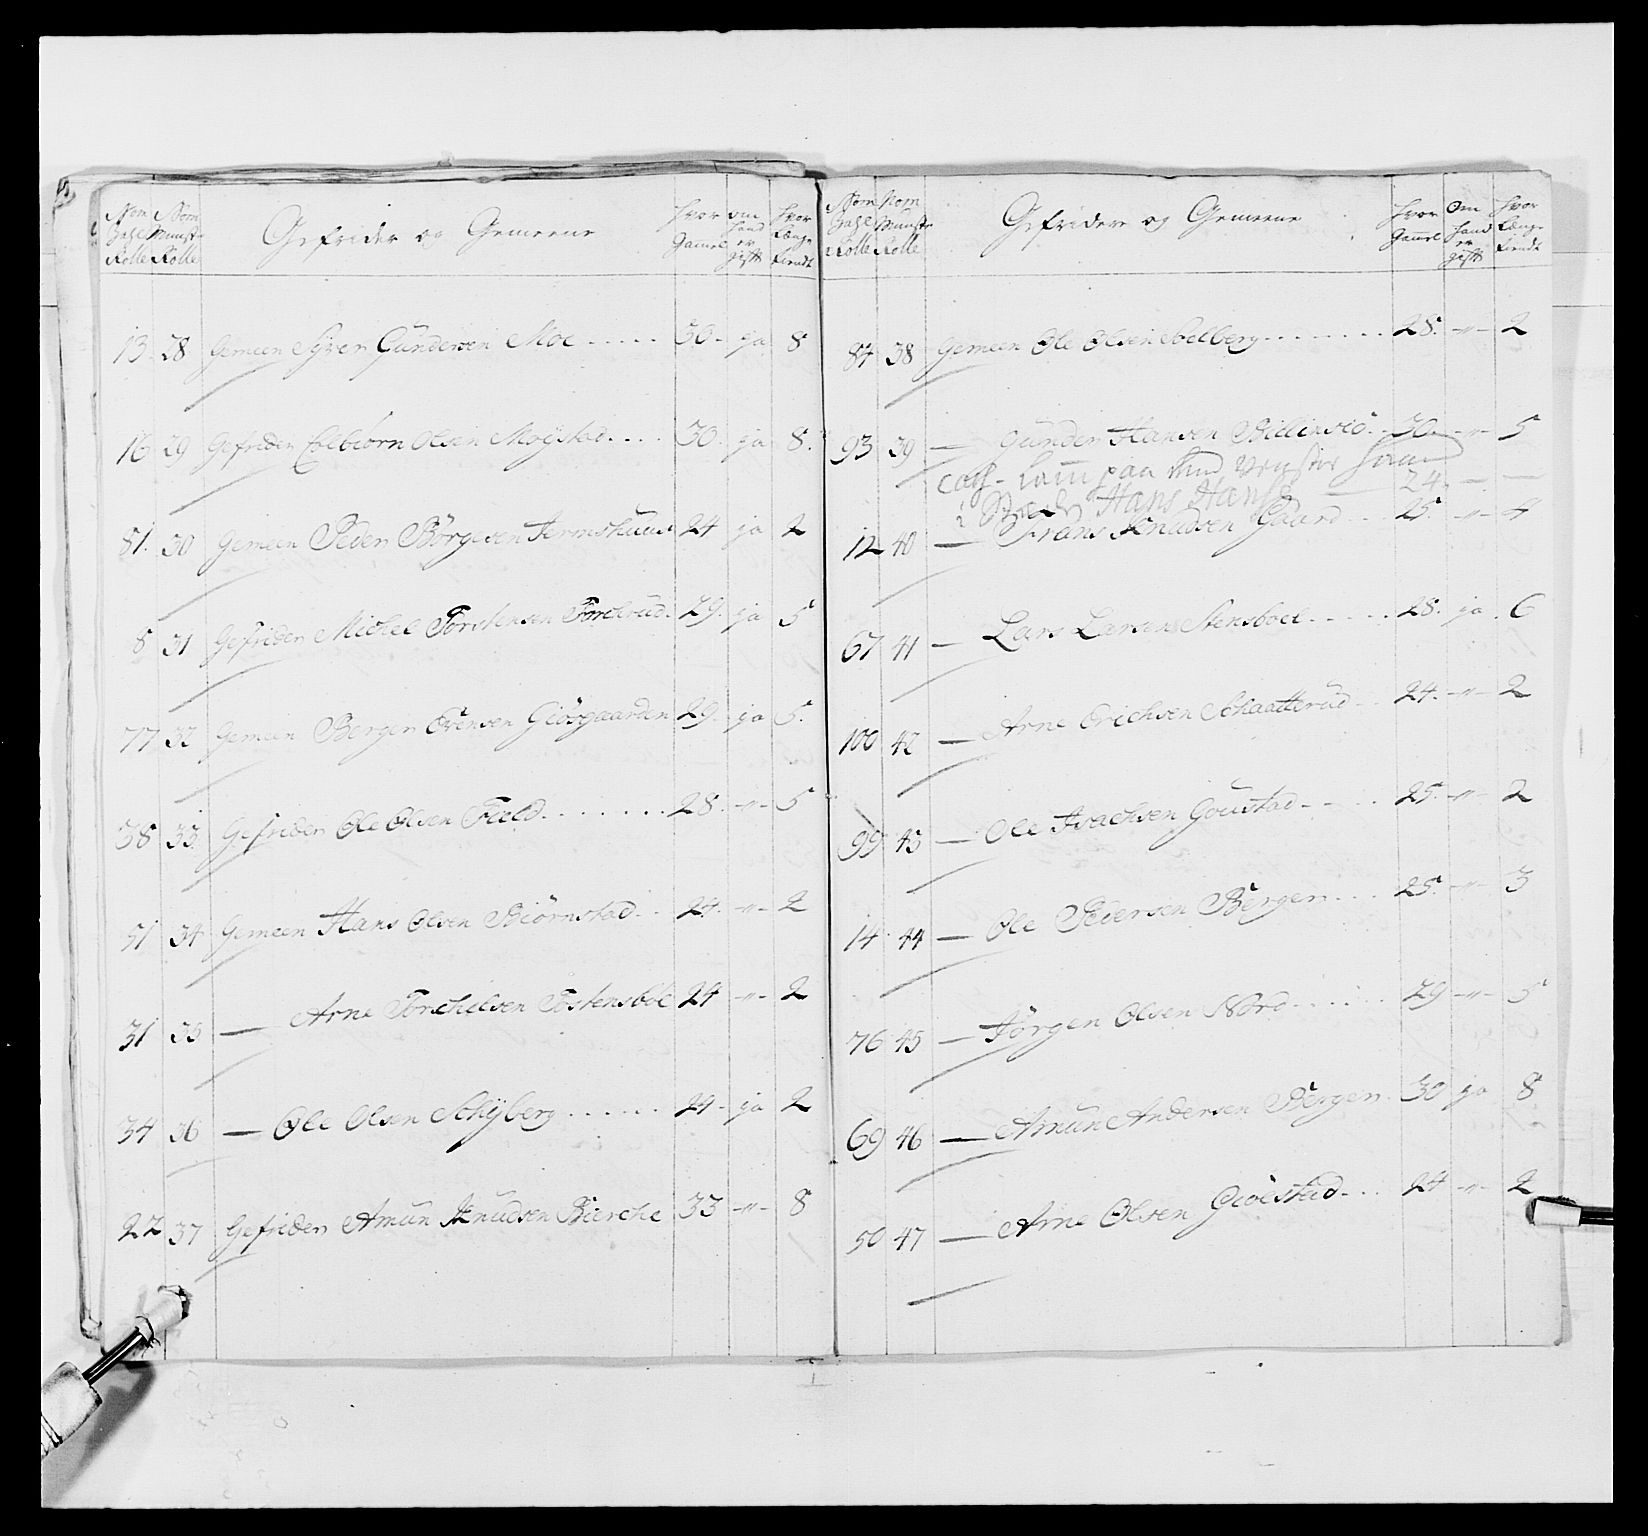 Nom Zahl Rolle | Nom Munst Rolle | Gefrider og Gemeene | hvor Gamel | om hand er gift | hvor længe tiendt
13 28 Gemeen Syver Gundersen Moe ..... 30 - ja 8
16 29 Gefrider Colbiørn Olsen Moystad .... 30. ja 8.
81. 30 Gemeen Peder Börgesen Jermshuus 24 ja 2
8 31 Gefrider Michel Torstensen Torcherud. 29. ja 5
77 32 Gemeen Berger Evensen Giösgaarden 29. ja 5.
38 33 Gefrider Ole Olsen Field ....... 28. -"- 5
51 34 Gemeen Hans Olsen Biörnstad .. 24. -"- 2
31 35 — Arne Torchelsen Tostensböl 24 -"- 2
34 36 — Ole Olsen Schyberg ...... 24 - ja 2
22 37 Gefrider Amun Knudsen Bierche 33 -"- 8
Nom Zahl Rolle | Nom Munstr Rolle | Gefridere og Gemeene | hvor Gamel | om hand er gift | hvor længe tiendt
84 38 Gemeen Ole Olsen Solberg ....... 28. -"- 2
93 39 — Gunder Hansen Billinsiö .. 30. -"- 5
paa venster
i Hans Hans — 24. - —
12 40 — Frans Knudsen Gaard .. 25. -"- 4
67 41 — Lars Larsen Stensboel ..... 28. ja . 6
100 42 — Arne Erichsen Schaatterud .. 24. -"- 2
99 43 — Ole Isachsen Goustad .... 25. -"- 2
14 44 — Ole Pedersen Berger ... 25. -"- 3
76 45 — Jörgen Olsen Nord ...... 29 -"- 5
69 46 — Amun Andersen Berger. 30 ja 8
50 47 — Arne Olsen Giölstad ... 24 -"- 2